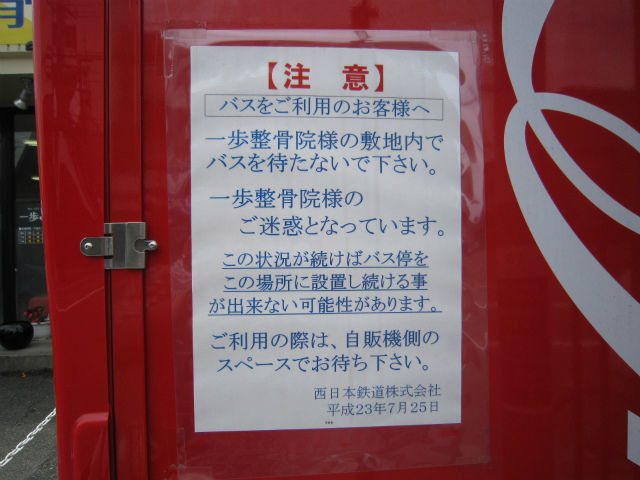 骨
【注　意】
バスをご利用のお客様へ
一歩整骨院様の敷地内で
バスを待たないで下さい。
一歩整骨院様の
ご迷惑となっています。
この状況が続けばバス停を
この場所に設置し続ける事
が出来ない可能性があります。
ご利用の際は、自販機側の
スペースでお待ち下さい。
西日本鉄道株式会社
平成23年7月25日
一歩